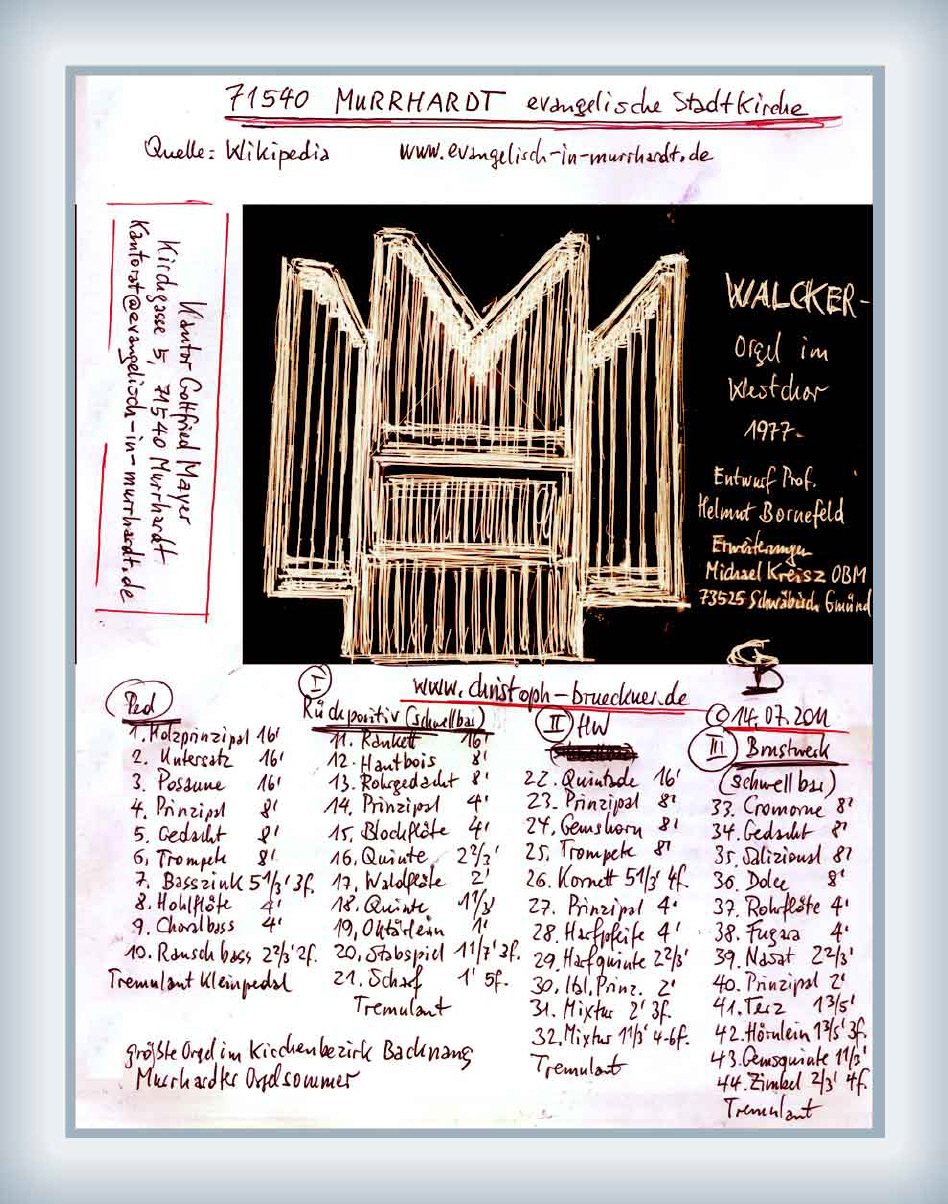 71540 MURRHARDT evangelische Stadtkirche
Quelle: Wikipedia www.evangelisch-in-murrhardt.de
Kantor Gottfried Mayer
Kirchgasse 5, 71540 Murrhardt
Kantorat@evangelisch-in-murrhardt.de
WALCKER-
Orgel im
Westchor
1977.
Entwurf Prof.
Helmut Bornefeld
Erweiterungen
Michael Kreisz OBM
73525 Schwäbisch Gmünd
www.christoph-brueckner.de
© 14.07.2011
Ped
1. Holzprinzipal 16'
2. Untersatz 16'
3. Posaune 16'
4. Prinzipal 8'
5. Gedackt 8'
6. Trompete 8'
7. Basszink 5 1/3' 3f.
8. Hohlflöte 4'
9. Choralbass 4'
10. Rauschbass 2 2/3' 2f.
Tremulant Kleinpedal
I
Rückpositiv (schwellbar)
11. Rankett 16'
12. Hautbois 8'
13. Rohrgedackt 8'
14. Prinzipal 4'
15. Blockflöte 4'
16. Quinte 2 2/3'
17. Waldflöte 2'
18. Quinte 1 1/3'
19. Oktävlein 1'
20. Stabspiel 1 1/7' 3f.
21. Scharf 1' 5f.
Tremulant
II HW
22. Quintade 16'
23. Prinzipal 8'
24. Gemshorn 8'
25. Trompete 8'
26. Kornett 5 1/3' 4f.
27. Prinzipal 4'
28. Harfpfeife 4'
29. Harfquinte 2 2/3'
30. Ital. Prinz. 2'
31. Mixtur 2' 3f.
32. Mixtur 1 1/3' 4-6f.
Tremulant
III Brustwerk
(schwellbar)
33. Cromorne 8'
34. Gedackt 8'
35. Salizional 8'
36. Dolce 8'
37. Rohrflöte 4'
38. Fugara 4'
39. Nasat 2 2/3'
40. Prinzipal 2'
41. Terz 1 3/5'
42. Hörnlein 1 3/5' 3f.
43. Gemsquinte 1 1/3'
44. Zimbel 2/3' 4f.
Tremulant
größte Orgel im Kirchenbezirk Backnang
Murrhardter Orgelsommer